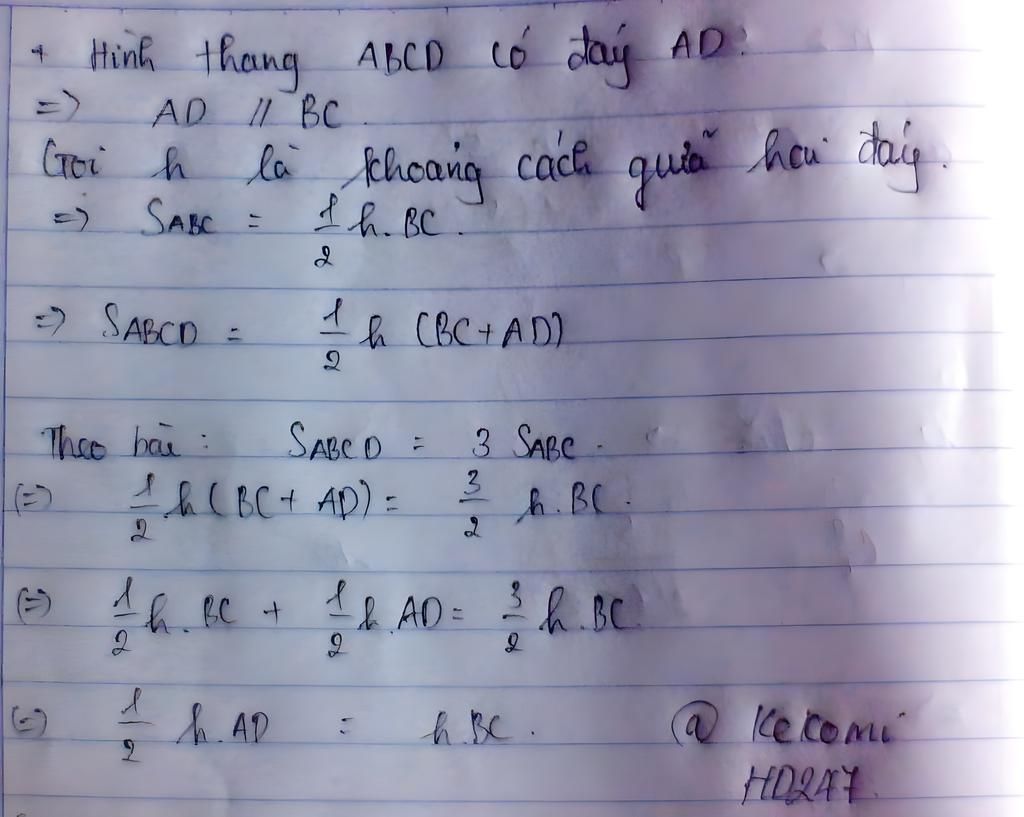 + Hình thang ABCD có đáy AD.
=> AD // BC.
Gọi h là khoảng cách giữa hai đáy.
=> SABC = 1/2 h.BC.
=> SABCD = 1/2 h (BC + AD)
Theo bài : SABCD = 3 SABC.
(=) 1/2 h (BC + AD) = 3/2 h.BC.
(=) 1/2 h.BC + 1/2 h.AD = 3/2 h.BC
(=) 1/2 h.AD = h.BC. @ Kekomi
HD247